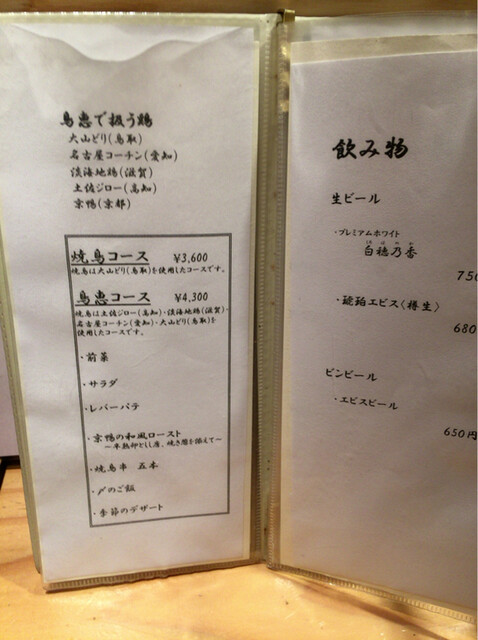 鳥恵で扱う鶏
大山どり(鳥取)
名古屋コーチン(愛知)
淡海地鶏(滋賀)
土佐ジロー(高知)
京鴨(京都)
焼鳥コース ¥3,600
焼鳥は大山どり(鳥取)を使用したコースです。
鳥恵コース ¥4,300
焼鳥は土佐ジロー(高知)・淡海地鶏(滋賀)・
名古屋コーチン(愛知)・大山どり(鳥取)を
使用したコースです。
・前菜
・サラダ
・レバーパテ
・京鴨の和風ロースト
〜半熟卵とじ房、焼き麿を添えて〜
・焼鳥串 五本
・〆のご飯
・季節のデザート
飲み物
生ビール
・プレミアムホワイト
白穂乃香
750
・琥珀ヱビス〈樽生〉
680
ビンビール
・エビスビール
650円